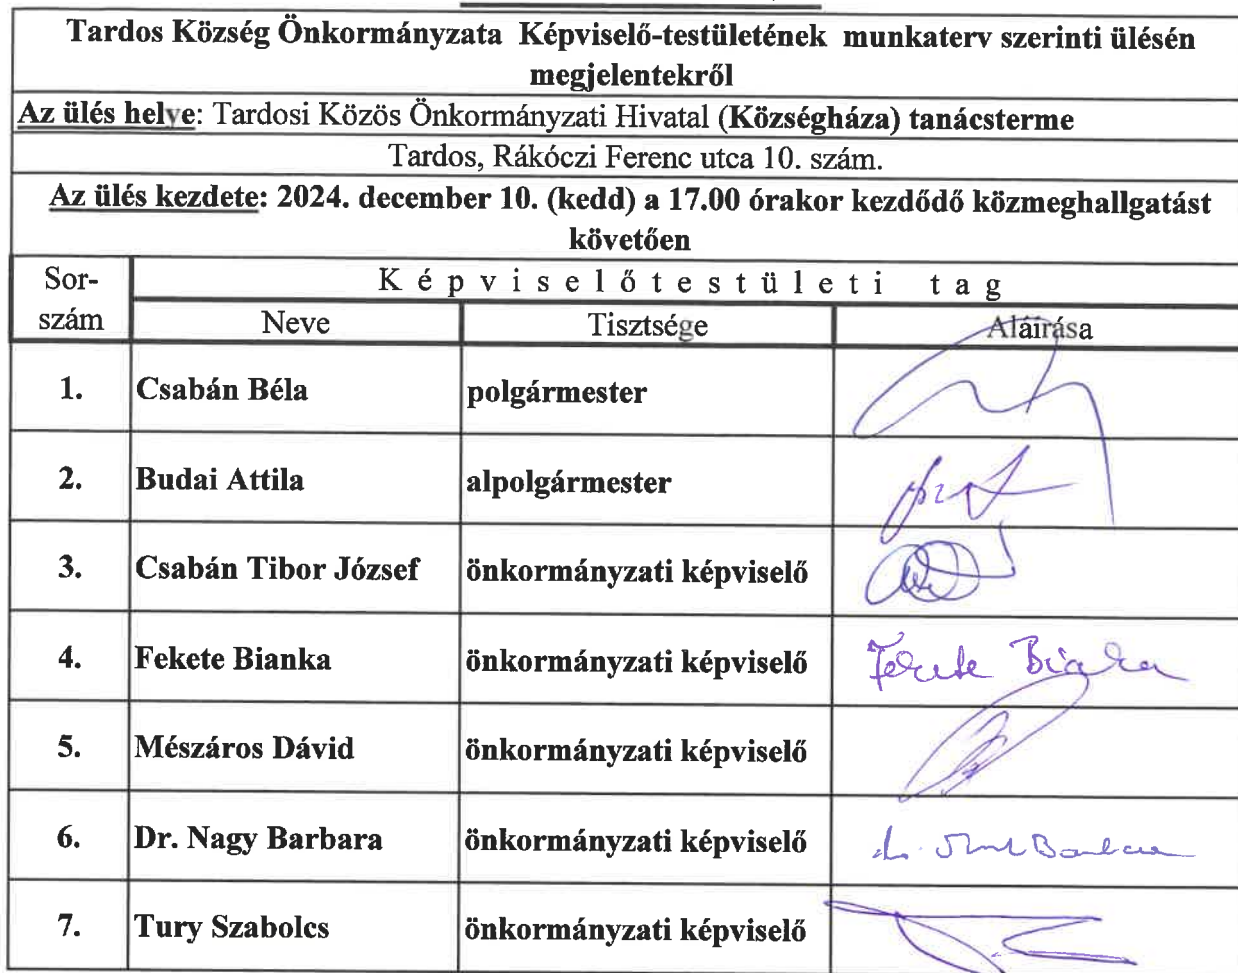 Tardos Község Önkormányzata Képviselő-testületének munkaterv szerinti ülésén
megjelentekről
Az ülés helye: Tardosi Közös Önkormányzati Hivatal (Községháza) tanácsterme
Tardos, Rákóczi Ferenc utca 10. szám.
Az ülés kezdete: 2024. december 10. (kedd) a 17.00 órakor kezdődő közmeghallgatást
követően
Sor-
szám
K é p v i s e l ő t e s t ü l e t i t a g
Neve Tisztsége Aláírása
1. Csabán Béla polgármester
2. Budai Attila alpolgármester
3. Csabán Tibor József önkormányzati képviselő
4. Fekete Bianka önkormányzati képviselő Fekete Bianka
5. Mészáros Dávid önkormányzati képviselő
6. Dr. Nagy Barbara önkormányzati képviselő
7. Tury Szabolcs önkormányzati képviselő